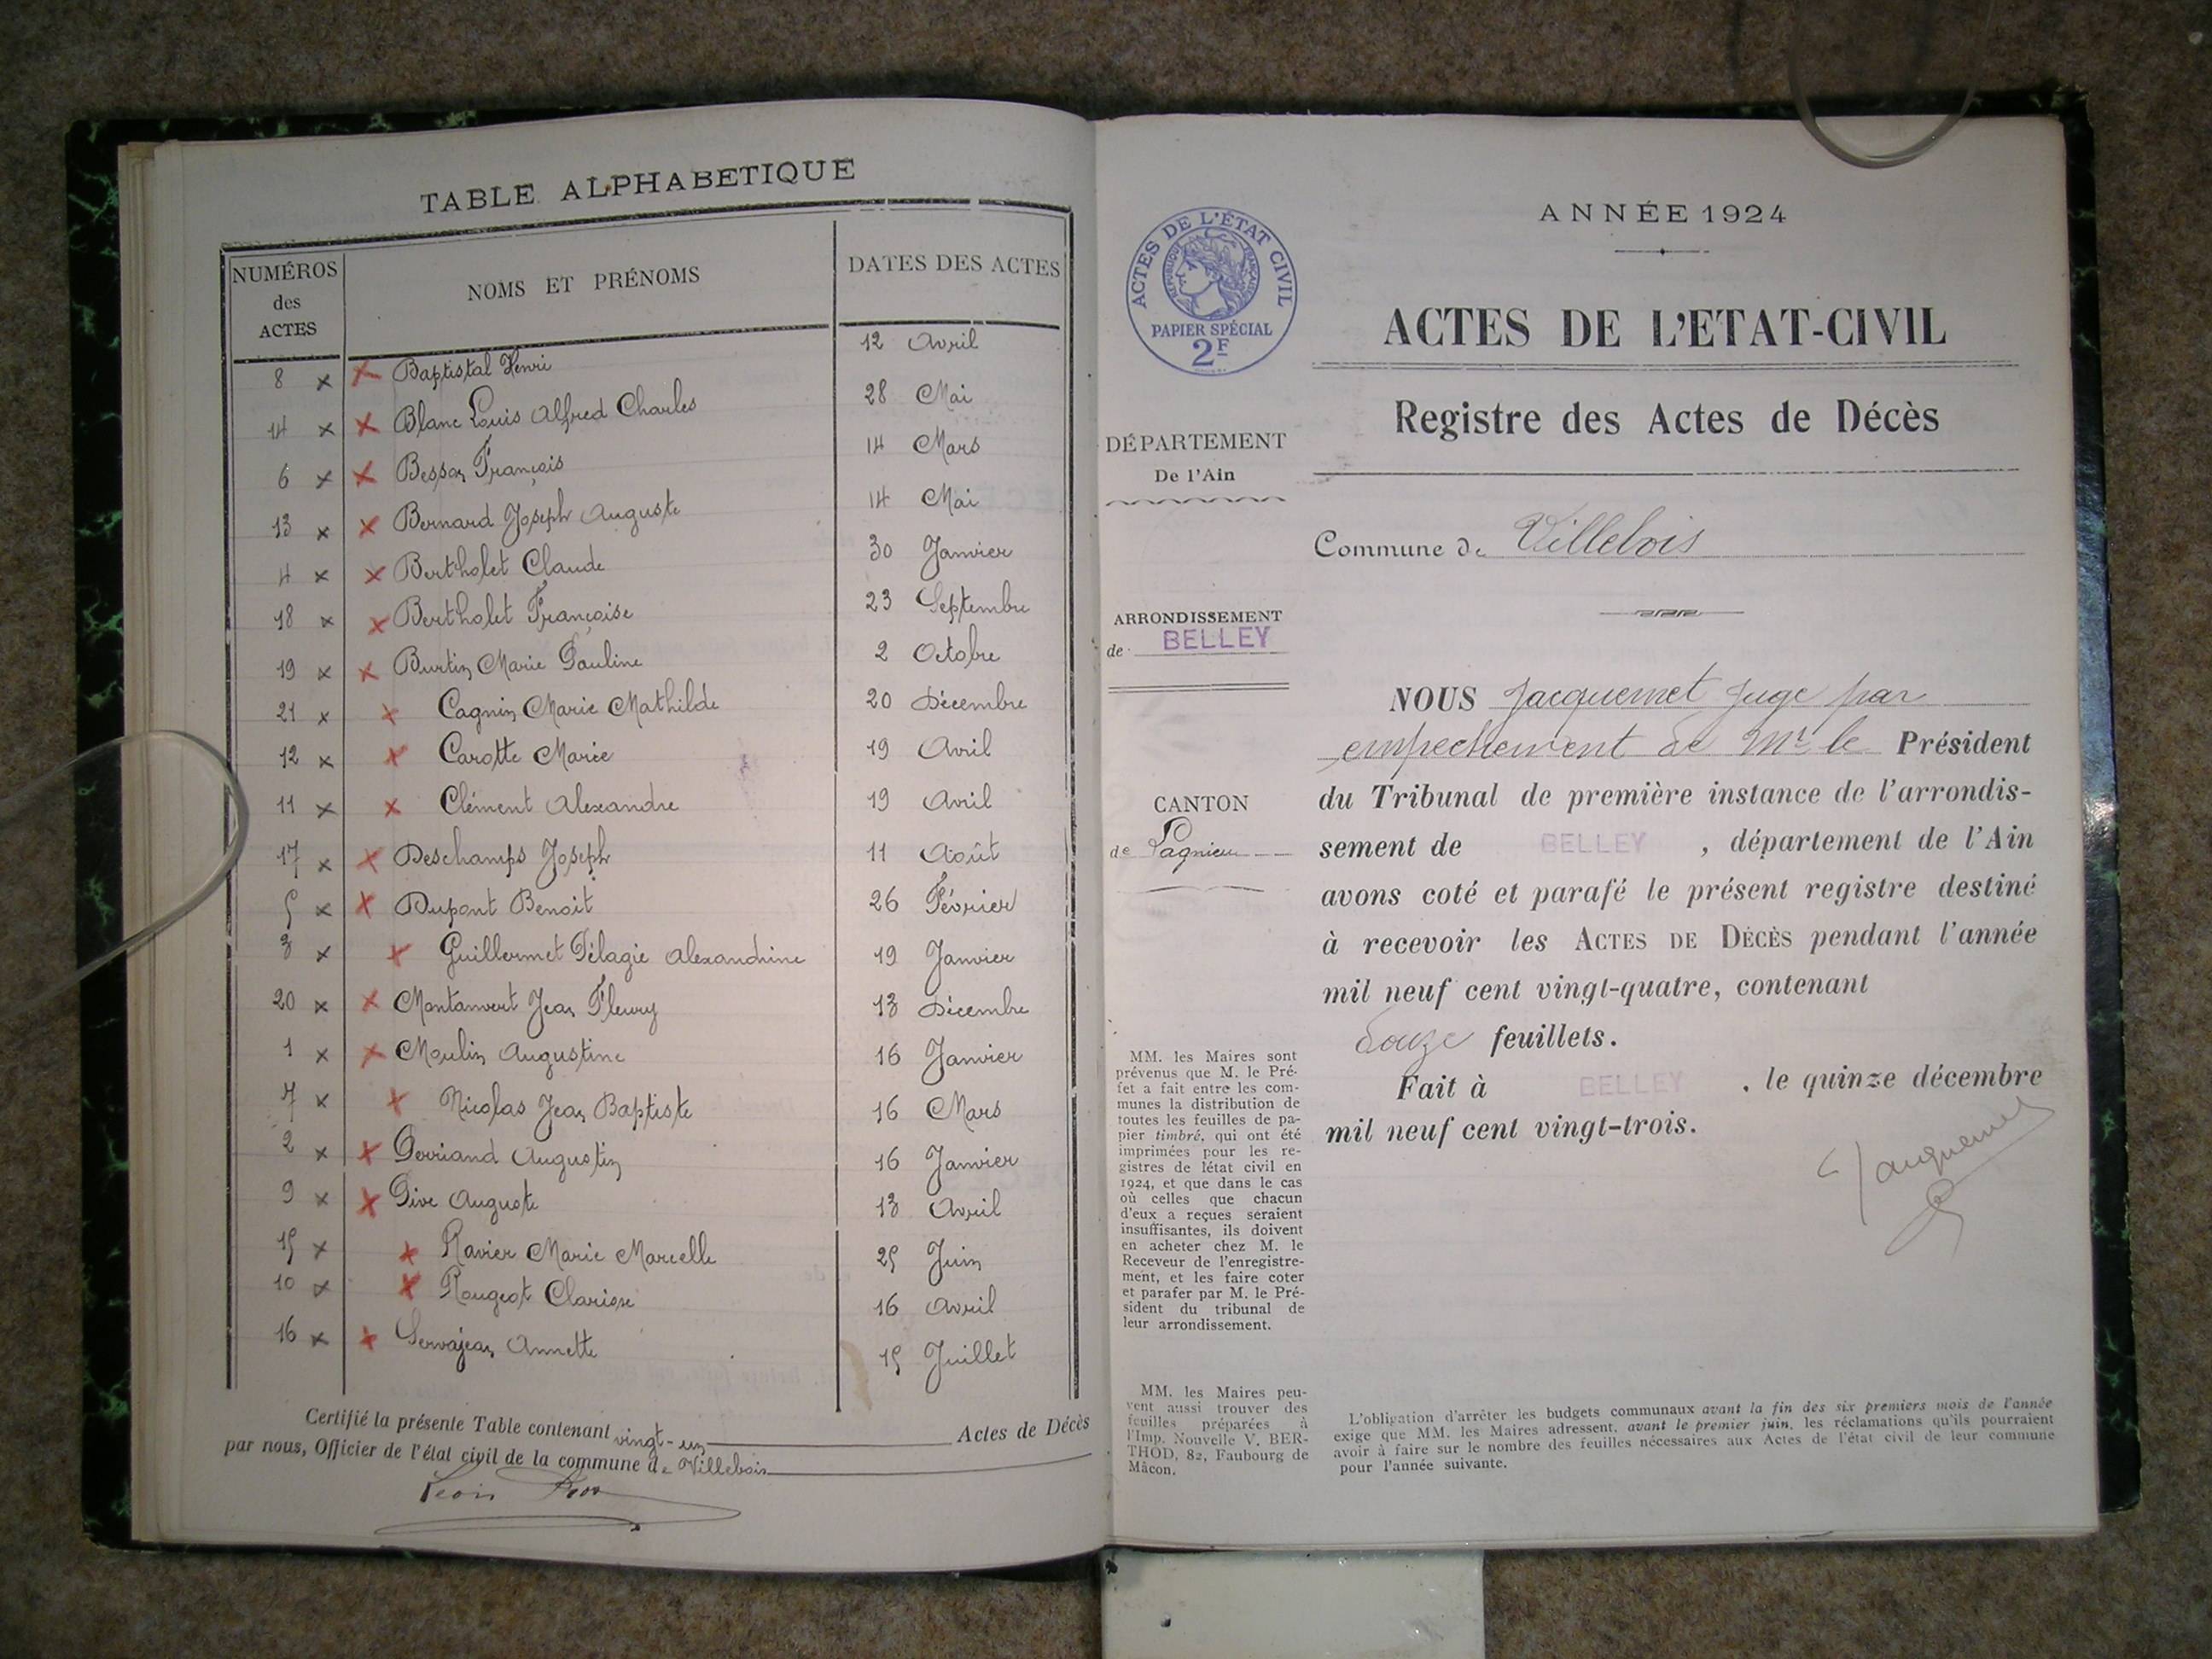 TABLE ALPHABETIQUE
NUMÉROS des ACTES NOMS ET PRÉNOMS DATES DES ACTES
8 x x Baptistal Henri 12 Avril
14 x x Blanc Louis Alfred Charles 28 Mai
6 x x Besson François 14 Mars
13 x x Bernard Joseph Auguste 14 Mai
4 x x Bertholet Claude 30 Janvier
18 x x Bertholet Françoise 23 Septembre
19 x x Burtin Marie Pauline 2 Octobre
21 x x Cagnin Marie Mathilde 20 Décembre
12 x x Carotte Marie 19 Avril
11 x x Clément Alexandre 19 Avril
17 x x Deschamps Joseph 11 Août
5 x x Dupont Benoit 26 Février
3 x x Guillermet Pélagie Alexandrine 19 Janvier
20 x x Montanvert Jean Fleury 13 Décembre
1 x x Moulin Augustine 16 Janvier
7 x x Nicolas Jean Baptiste 16 Mars
2 x x Perriand Augustin 16 Janvier
9 x x Pive Auguste 13 Avril
15 x x Ravier Marie Marcelle 25 Juin
10 x x Rougeot Clarisse 16 Avril
16 x x Servajean Annette 15 Juillet
Certifié la présente Table contenant vingt-un Actes de Décès
par nous, Officier de l'état civil de la commune de Villebois
ACTES DE L'ÉTAT CIVIL
RÉPUBLIQUE FRANÇAISE
PAPIER SPÉCIAL
2F
DÉPARTEMENT
De l'Ain
ARRONDISSEMENT
de BELLEY
CANTON
de Lagnieu
MM. les Maires sont
prévenus que M. le Pré-
fet a fait entre les com-
munes la distribution de
toutes les feuilles de pa-
pier timbré, qui ont été
imprimées pour les re-
gistres de l'état civil en
1924, et que dans le cas
où celles que chacun
d'eux a reçues seraient
insuffisantes, ils doivent
en acheter chez M. le
Receveur de l'enregistre-
ment, et les faire coter
et parafer par M. le Pré-
sident du tribunal de
leur arrondissement.
MM. les Maires peu-
vent aussi trouver des
feuilles préparées à
l'Imp. Nouvelle V. BER-
THOD, 82, Faubourg de
Mâcon.
ANNÉE 1924
ACTES DE L'ETAT-CIVIL
Registre des Actes de Décès
Commune de Villebois
NOUS Jacquemet Juge par
empechement de Mr le Président
du Tribunal de première instance de l'arrondis-
sement de BELLEY, département de l'Ain
avons coté et parafé le présent registre destiné
à recevoir les ACTES DE DÉCÈS pendant l'année
mil neuf cent vingt-quatre, contenant
douze feuillets.
Fait à BELLEY, le quinze décembre
mil neuf cent vingt-trois.
Jacquemet
L'obligation d'arrêter les budgets communaux avant la fin des six premiers mois de l'année
exige que MM. les Maires adressent, avant le premier juin, les réclamations qu'ils pourraient
avoir à faire sur le nombre des feuilles nécessaires aux Actes de l'état civil de leur commune
pour l'année suivante.